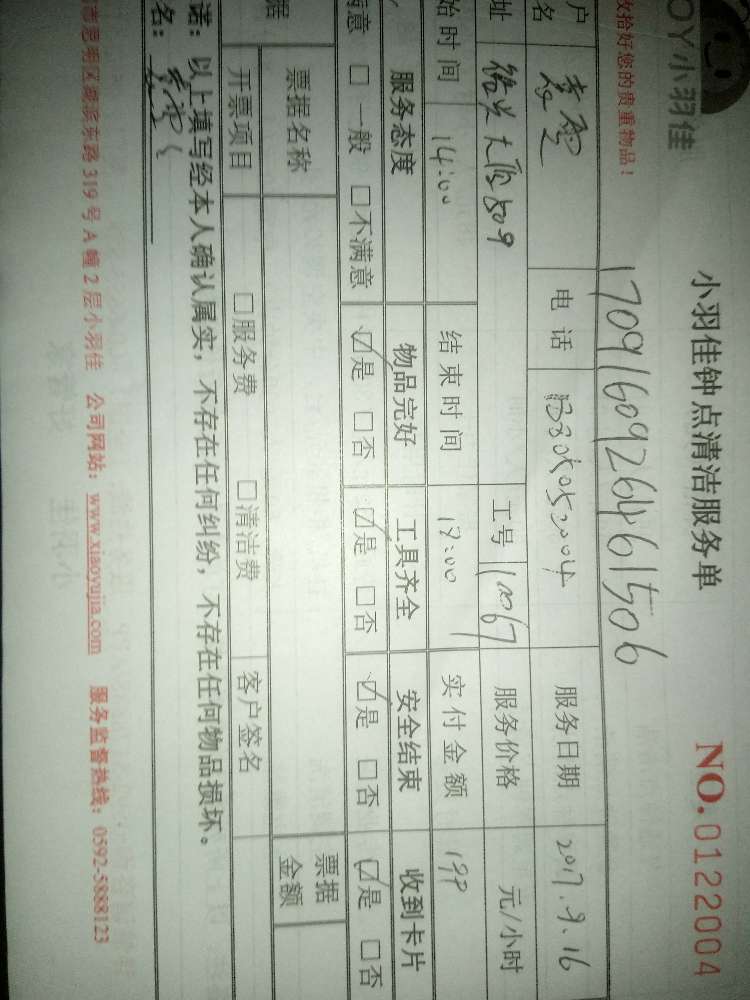 OY小羽佳
小羽佳钟点清洁服务单
NO.0122004
收拾好您的贵重物品！
1709160926461506
户名 电话 服务日期 2017.9.16
址 大厦509 工号 服务价格 元/小时
始时间 14:00 结束时间 实付金额
服务态度 物品完好 工具齐全 安全结束 收到卡片
满意 □一般 □不满意 ☑是 □否 ☑是 □否 ☑是 □否 ☑是 □否
据 票据名称 票据金额
开票项目 □服务费 □清洁费 客户签名
诺：以上填写经本人确认属实，不存在任何纠纷，不存在任何物品损坏。
名：
市思明区湖滨东路319号A幢2层小羽佳 公司网站：www.xiaoyujia.com 服务监督热线：0592-5888123